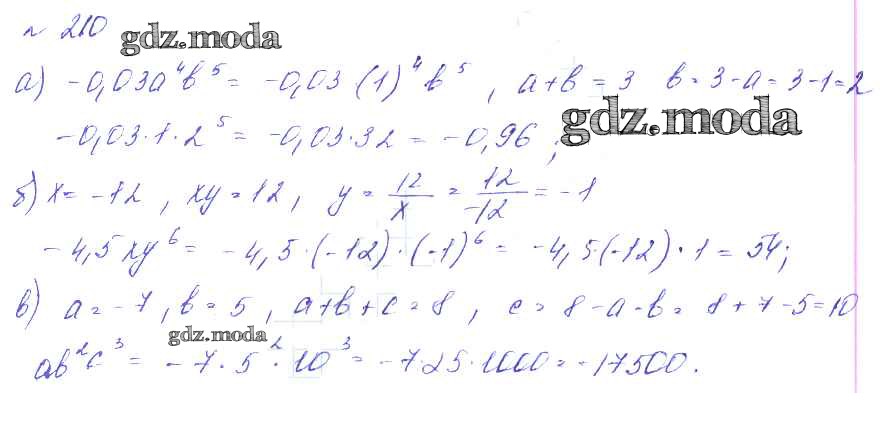 № 210
gdz.moda
а) -0,03a⁴b⁵ = -0,03 (1)⁴ b⁵, a+b = 3 b = 3-a = 3-1=2
-0,03·1·2⁵ = -0,03·32 = -0,96;
gdz.moda
б) x= -12, xy = 12, y = 12/x = 12/-12 = -1
-4,5xy⁶ = -4,5·(-12)·(-1)⁶ = -4,5·(-12)·1 = 54;
в) a = -7, b = 5, a+b+c = 8, c = 8-a-b = 8+7-5=10
gdz.moda
ab²c³ = -7·5²·10³ = -7·25·1000 = -17500.